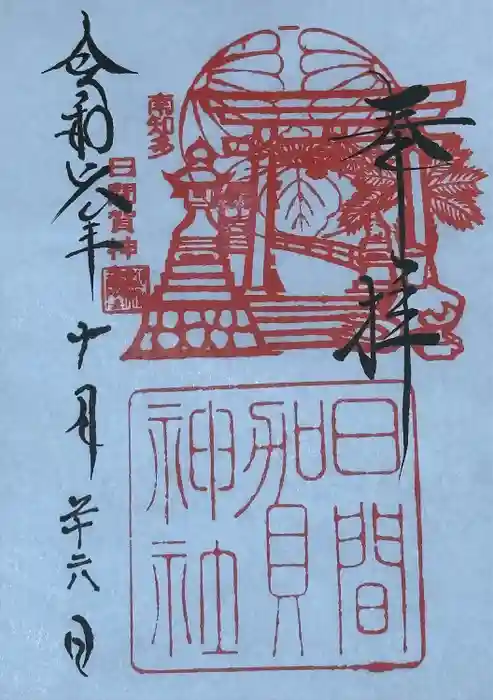 奉拝
南知多
日間賀神
日間賀神社
令和六年十月廿六日